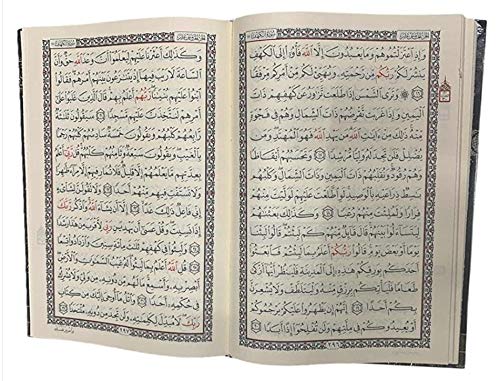 وَإِذِ ٱعْتَزَلْتُمُوهُمْ وَمَا يَعْبُدُونَ إِلَّا ٱللَّهَ فَأْوُۥٓا۟ إِلَى ٱلْكَهْفِ
يَنشُرْ لَكُمْ رَبُّكُم مِّن رَّحْمَتِهِۦ وَيُهَيِّئْ لَكُم مِّنْ أَمْرِكُم مِّرْفَقًا
١٦ ۞ وَتَرَى ٱلشَّمْسَ إِذَا طَلَعَت تَّزَٰوَرُ عَن كَهْفِهِمْ ذَاتَ
ٱلْيَمِينِ وَإِذَا غَرَبَت تَّقْرِضُهُمْ ذَاتَ ٱلشِّمَالِ وَهُمْ فِى فَجْوَةٍ
مِّنْهُ ذَٰلِكَ مِنْ ءَايَٰتِ ٱللَّهِ مَن يَهْدِ ٱللَّهُ فَهُوَ ٱلْمُهْتَدِ وَمَن
يُضْلِلْ فَلَن تَجِدَ لَهُۥ وَلِيًّا مُّرْشِدًا ١٧ وَتَحْسَبُهُمْ أَيْقَاظًا
وَهُمْ رُقُودٌ وَنُقَلِّبُهُمْ ذَاتَ ٱلْيَمِينِ وَذَاتَ ٱلشِّمَالِ وَكَلْبُهُم
بَٰسِطٌ ذِرَاعَيْهِ بِٱلْوَصِيدِ لَوِ ٱطَّلَعْتَ عَلَيْهِمْ لَوَلَّيْتَ مِنْهُمْ
فِرَارًا وَلَمُلِئْتَ مِنْهُمْ رُعْبًا ١٨ وَكَذَٰلِكَ بَعَثْنَٰهُمْ
لِيَتَسَآءَلُوا۟ بَيْنَهُمْ قَالَ قَآئِلٌ مِّنْهُمْ كَمْ لَبِثْتُمْ قَالُوا۟ لَبِثْنَا
يَوْمًا أَوْ بَعْضَ يَوْمٍ قَالُوا۟ رَبُّكُمْ أَعْلَمُ بِمَا لَبِثْتُمْ فَٱبْعَثُوٓا۟
أَحَدَكُم بِوَرِقِكُمْ هَٰذِهِۦٓ إِلَى ٱلْمَدِينَةِ فَلْيَنظُرْ أَيُّهَآ أَزْكَىٰ
طَعَامًا فَلْيَأْتِكُم بِرِزْقٍ مِّنْهُ وَلْيَتَلَطَّفْ وَلَا يُشْعِرَنَّ
بِكُمْ أَحَدًا ١٩ إِنَّهُمْ إِن يَظْهَرُوا۟ عَلَيْكُمْ يَرْجُمُوكُمْ
أَوْ يُعِيدُوكُمْ فِى مِلَّتِهِمْ وَلَن تُفْلِحُوٓا۟ إِذًا أَبَدًا ٢٠
وَكَذَٰلِكَ أَعْثَرْنَا عَلَيْهِمْ لِيَعْلَمُوٓا۟ أَنَّ وَعْدَ ٱللَّهِ حَقٌّ وَأَنَّ
ٱلسَّاعَةَ لَا رَيْبَ فِيهَآ إِذْ يَتَنَٰزَعُونَ بَيْنَهُمْ أَمْرَهُمْ فَقَالُوا۟
ٱبْنُوا۟ عَلَيْهِم بُنْيَٰنًا رَّبُّهُمْ أَعْلَمُ بِهِمْ قَالَ ٱلَّذِينَ غَلَبُوا۟ عَلَىٰٓ
أَمْرِهِمْ لَنَتَّخِذَنَّ عَلَيْهِم مَّسْجِدًا ٢١ سَيَقُولُونَ ثَلَٰثَةٌ
رَّابِعُهُمْ كَلْبُهُمْ وَيَقُولُونَ خَمْسَةٌ سَادِسُهُمْ كَلْبُهُمْ رَجْمًۢا
بِٱلْغَيْبِ وَيَقُولُونَ سَبْعَةٌ وَثَامِنُهُمْ كَلْبُهُمْ قُل رَّبِّىٓ أَعْلَمُ
بِعِدَّتِهِم مَّا يَعْلَمُهُمْ إِلَّا قَلِيلٌ فَلَا تُمَارِ فِيهِمْ إِلَّا مِرَآءً ظَٰهِرًا
وَلَا تَسْتَفْتِ فِيهِم مِّنْهُمْ أَحَدًا ٢٢ وَلَا تَقُولَنَّ لِشَا۟ىْءٍ
إِنِّى فَاعِلٌ ذَٰلِكَ غَدًا ٢٣ إِلَّآ أَن يَشَآءَ ٱللَّهُ وَٱذْكُر رَّبَّكَ
إِذَا نَسِيتَ وَقُلْ عَسَىٰٓ أَن يَهْدِيَنِ رَبِّى لِأَقْرَبَ مِنْ هَٰذَا رَشَدًا
٢٤ وَلَبِثُوا۟ فِى كَهْفِهِمْ ثَلَٰثَ مِا۟ئَةٍ سِنِينَ وَٱزْدَادُوا۟ تِسْعًا
٢٥ قُلِ ٱللَّهُ أَعْلَمُ بِمَا لَبِثُوا۟ لَهُۥ غَيْبُ ٱلسَّمَٰوَٰتِ وَٱلْأَرْضِ
أَبْصِرْ بِهِۦ وَأَسْمِعْ مَا لَهُم مِّن دُونِهِۦ مِن وَلِىٍّ وَلَا يُشْرِكُ
فِى حُكْمِهِۦٓ أَحَدًا ٢٦ وَٱتْلُ مَآ أُوحِىَ إِلَيْكَ مِن كِتَابِ
رَبِّكَ لَا مُبَدِّلَ لِكَلِمَٰتِهِۦ وَلَن تَجِدَ مِن دُونِهِۦ مُلْتَحَدًا ٢٧